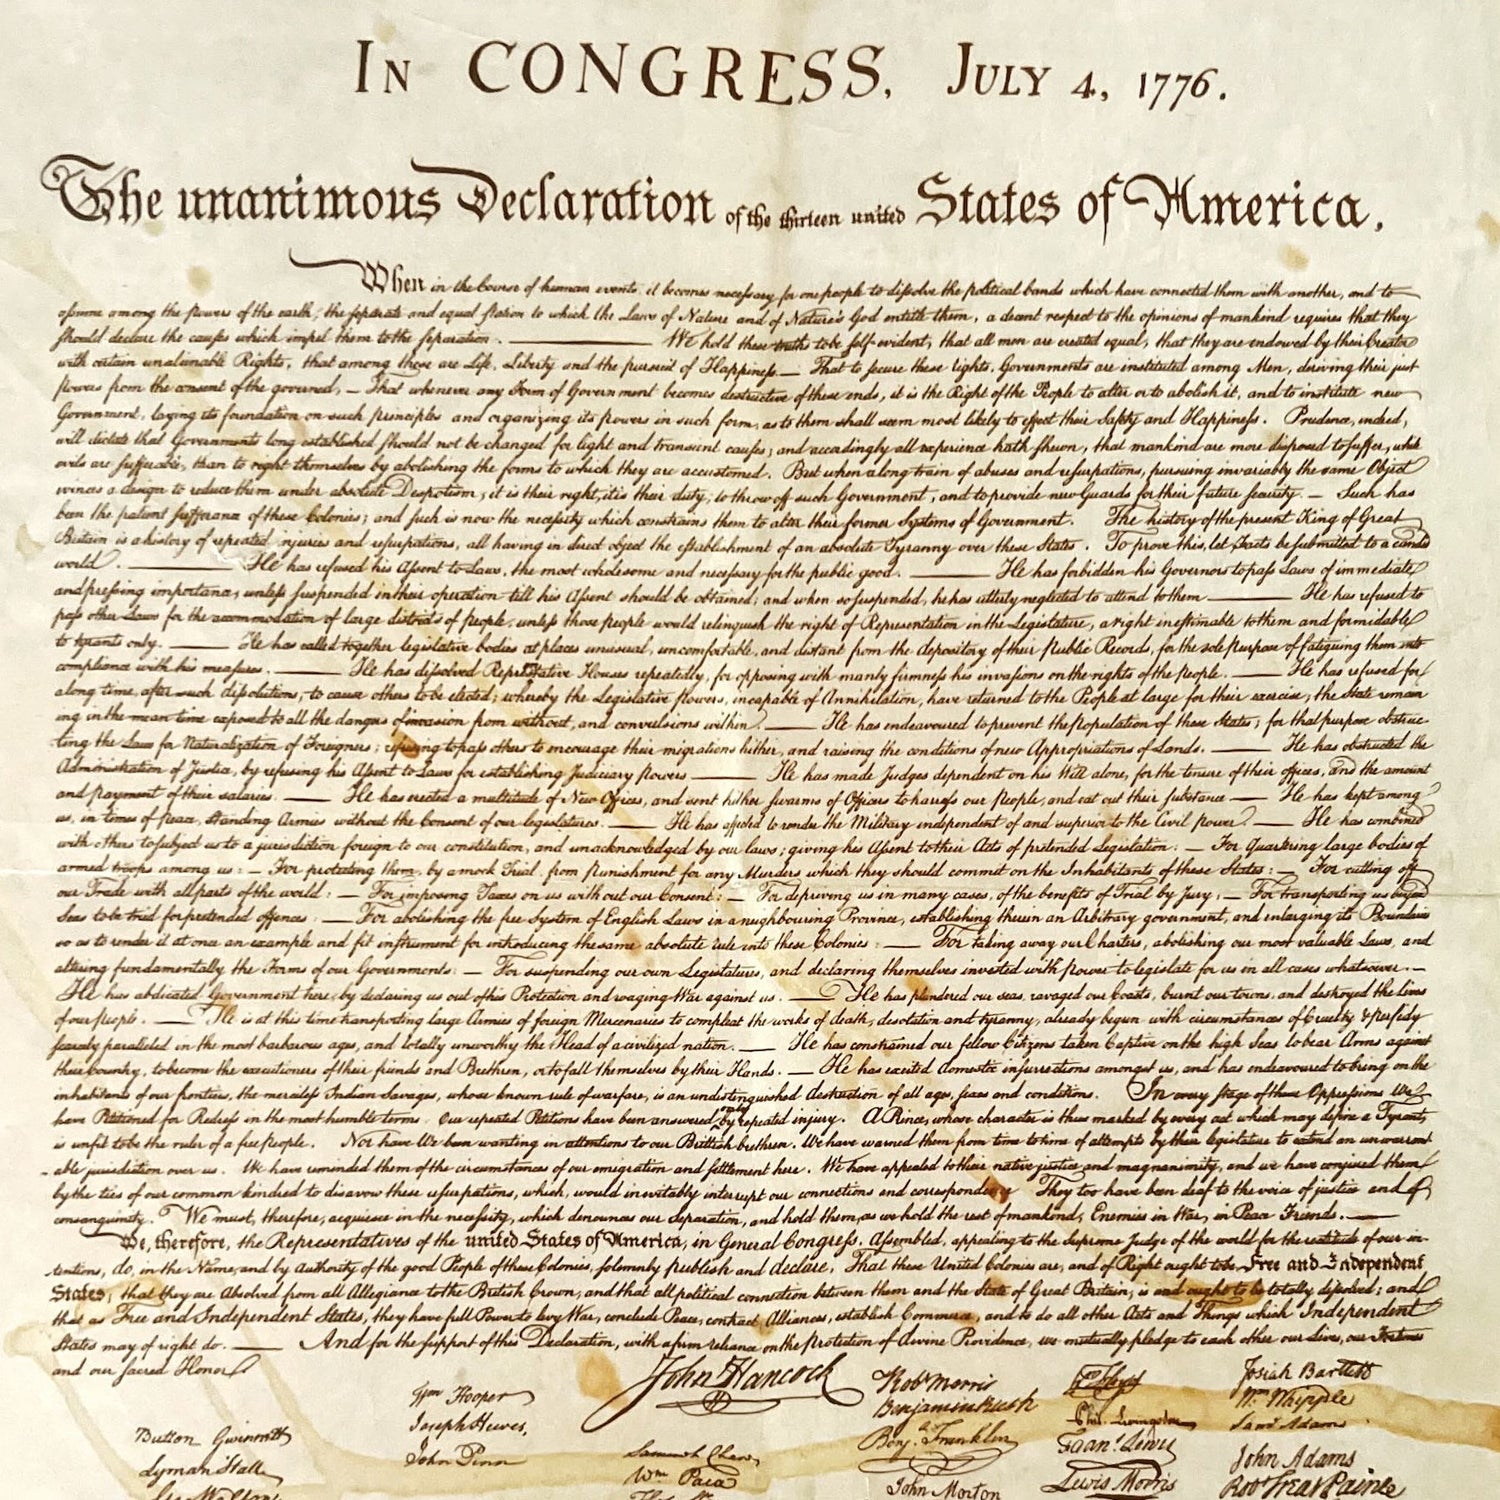 In CONGRESS, July 4, 1776.
The unanimous Declaration of the thirteen united States of America,
When in the Course of human events, it becomes necessary for one people to dissolve the political bands which have connected them with another, and to
assume among the powers of the earth, the separate and equal station to which the Laws of Nature and of Nature's God entitle them, a decent respect to the opinions of mankind requires that they
should declare the causes which impel them to the separation. — We hold these truths to be self-evident, that all men are created equal, that they are endowed by their Creator
with certain unalienable Rights, that among these are Life, Liberty and the pursuit of Happiness. — That to secure these rights, Governments are instituted among Men, deriving their just
powers from the consent of the governed, — That whenever any Form of Government becomes destructive of these ends, it is the Right of the People to alter or to abolish it, and to institute new
Government, laying its foundation on such principles and organizing its powers in such form, as to them shall seem most likely to effect their Safety and Happiness. Prudence, indeed,
will dictate that Governments long established should not be changed for light and transient causes; and accordingly all experience hath shewn, that mankind are more disposed to suffer, while
evils are sufferable, than to right themselves by abolishing the forms to which they are accustomed. But when a long train of abuses and usurpations, pursuing invariably the same Object
evinces a design to reduce them under absolute Despotism, it is their right, it is their duty, to throw off such Government, and to provide new Guards for their future security. — Such has
been the patient sufferance of these Colonies; and such is now the necessity which constrains them to alter their former Systems of Government. The history of the present King of Great
Britain is a history of repeated injuries and usurpations, all having in direct object the establishment of an absolute Tyranny over these States. To prove this, let Facts be submitted to a candid
world. — He has refused his Assent to Laws, the most wholesome and necessary for the public good. — He has forbidden his Governors to pass Laws of immediate
and pressing importance, unless suspended in their operation till his Assent should be obtained; and when so suspended, he has utterly neglected to attend to them — He has refused to
pass other Laws for the accommodation of large districts of people, unless those people would relinquish the right of Representation in the Legislature, a right inestimable to them and formidable
to tyrants only. — He has called together legislative bodies at places unusual, uncomfortable, and distant from the depository of their Public Records, for the sole purpose of fatiguing them into
compliance with his measures. — He has dissolved Representative Houses repeatedly, for opposing with manly firmness his invasions on the rights of the people. — He has refused for
a long time, after such dissolutions, to cause others to be elected; whereby the Legislative powers, incapable of Annihilation, have returned to the People at large for their exercise; the State remain
ing in the mean time exposed to all the dangers of invasion from without, and convulsions within. — He has endeavoured to prevent the population of these States; for that purpose obstruc
ting the Laws for Naturalization of Foreigners; refusing to pass others to encourage their migrations hither, and raising the conditions of new Appropriations of Lands. — He has obstructed the
Administration of Justice, by refusing his Assent to Laws for establishing Judiciary powers — He has made Judges dependent on his Will alone, for the tenure of their offices, and the amount
and payment of their salaries. — He has erected a multitude of New Offices, and sent hither swarms of Officers to harrass our People, and eat out their substance — He has kept among
us, in times of peace, Standing Armies without the Consent of our legislatures. — He has affected to render the Military independent of and superior to the Civil power. — He has combined
with others to subject us to a jurisdiction foreign to our constitution, and unacknowledged by our laws; giving his Assent to their Acts of pretended Legislation: — For Quartering large bodies of
armed troops among us: — For protecting them, by a mock Trial, from Punishment for any Murders which they should commit on the Inhabitants of these States: — For cutting off
our Trade with all parts of the world: — For imposing Taxes on us without our Consent: — For depriving us in many cases, of the benefits of Trial by Jury: — For transporting us beyond
Seas to be tried for pretended offences — For abolishing the free System of English Laws in a neighbouring Province, establishing therein an Arbitrary government, and enlarging its Boundaries
so as to render it at once an example and fit instrument for introducing the same absolute rule into these Colonies: — For taking away our Charters, abolishing our most valuable Laws, and
altering fundamentally the Forms of our Governments: — For suspending our own Legislatures, and declaring themselves invested with power to legislate for us in all cases whatsoever. —
He has abdicated Government here, by declaring us out of his Protection and waging War against us. — He has plundered our seas, ravaged our Coasts, burnt our towns, and destroyed the lives
of our people. — He is at this time transporting large Armies of foreign Mercenaries to compleat the works of death, desolation and tyranny, already begun with circumstances of Cruelty & perfidy
scarcely paralleled in the most barbarous ages, and totally unworthy the Head of a civilized nation. — He has constrained our fellow Citizens taken Captive on the high Seas to bear Arms against
their Country, to become the executioners of their friends and Brethren, or to fall themselves by their Hands. — He has excited domestic insurrections amongst us, and has endeavoured to bring on the
inhabitants of our frontiers, the merciless Indian Savages, whose known rule of warfare, is an undistinguished destruction of all ages, sexes and conditions. In every stage of these Oppressions We
have Petitioned for Redress in the most humble terms: Our repeated Petitions have been answered only by repeated injury. A Prince, whose character is thus marked by every act which may define a Tyrant,
is unfit to be the ruler of a free people. Nor have We been wanting in attentions to our Brittish brethren. We have warned them from time to time of attempts by their legislature to extend an unwarrant
-able jurisdiction over us. We have reminded them of the circumstances of our emigration and settlement here. We have appealed to their native justice and magnanimity, and we have conjured them
by the ties of our common kindred to disavow these usurpations, which, would inevitably interrupt our connections and correspondence They too have been deaf to the voice of justice and of
consanguinity. We must, therefore, acquiesce in the necessity, which denounces our Separation, and hold them, as we hold the rest of mankind, Enemies in War, in Peace Friends. —
We, therefore, the Representatives of the united States of America, in General Congress, Assembled, appealing to the Supreme Judge of the world for the rectitude of our in-
tentions, do, in the Name, and by Authority of the good People of these Colonies, solemnly publish and declare, That these United Colonies are, and of Right ought to be Free and Independent
States; that they are Absolved from all Allegiance to the British Crown, and that all political connection between them and the State of Great Britain, is and ought to be totally dissolved; and
that as Free and Independent States, they have full Power to levy War, conclude Peace, contract Alliances, establish Commerce, and to do all other Acts and Things which Independent
States may of right do. — And for the support of this Declaration, with a firm reliance on the Protection of divine Providence, we mutually pledge to each other our Lives, our Fortunes
and our sacred Honor
John Hancock
Button Gwinnett
Lyman Hall
Geo Walton
Wm Hooper
Joseph Hewes,
John Penn
Samuel Chase
Wm Paca
Robt Morris
Benjamin Rush
Benj. Franklin
John Morton
Phil. Livingston
Frans. Lewis
Lewis Morris
Josiah Bartlett
Wm Whipple
Saml Adams
John Adams
Robt Treat Paine